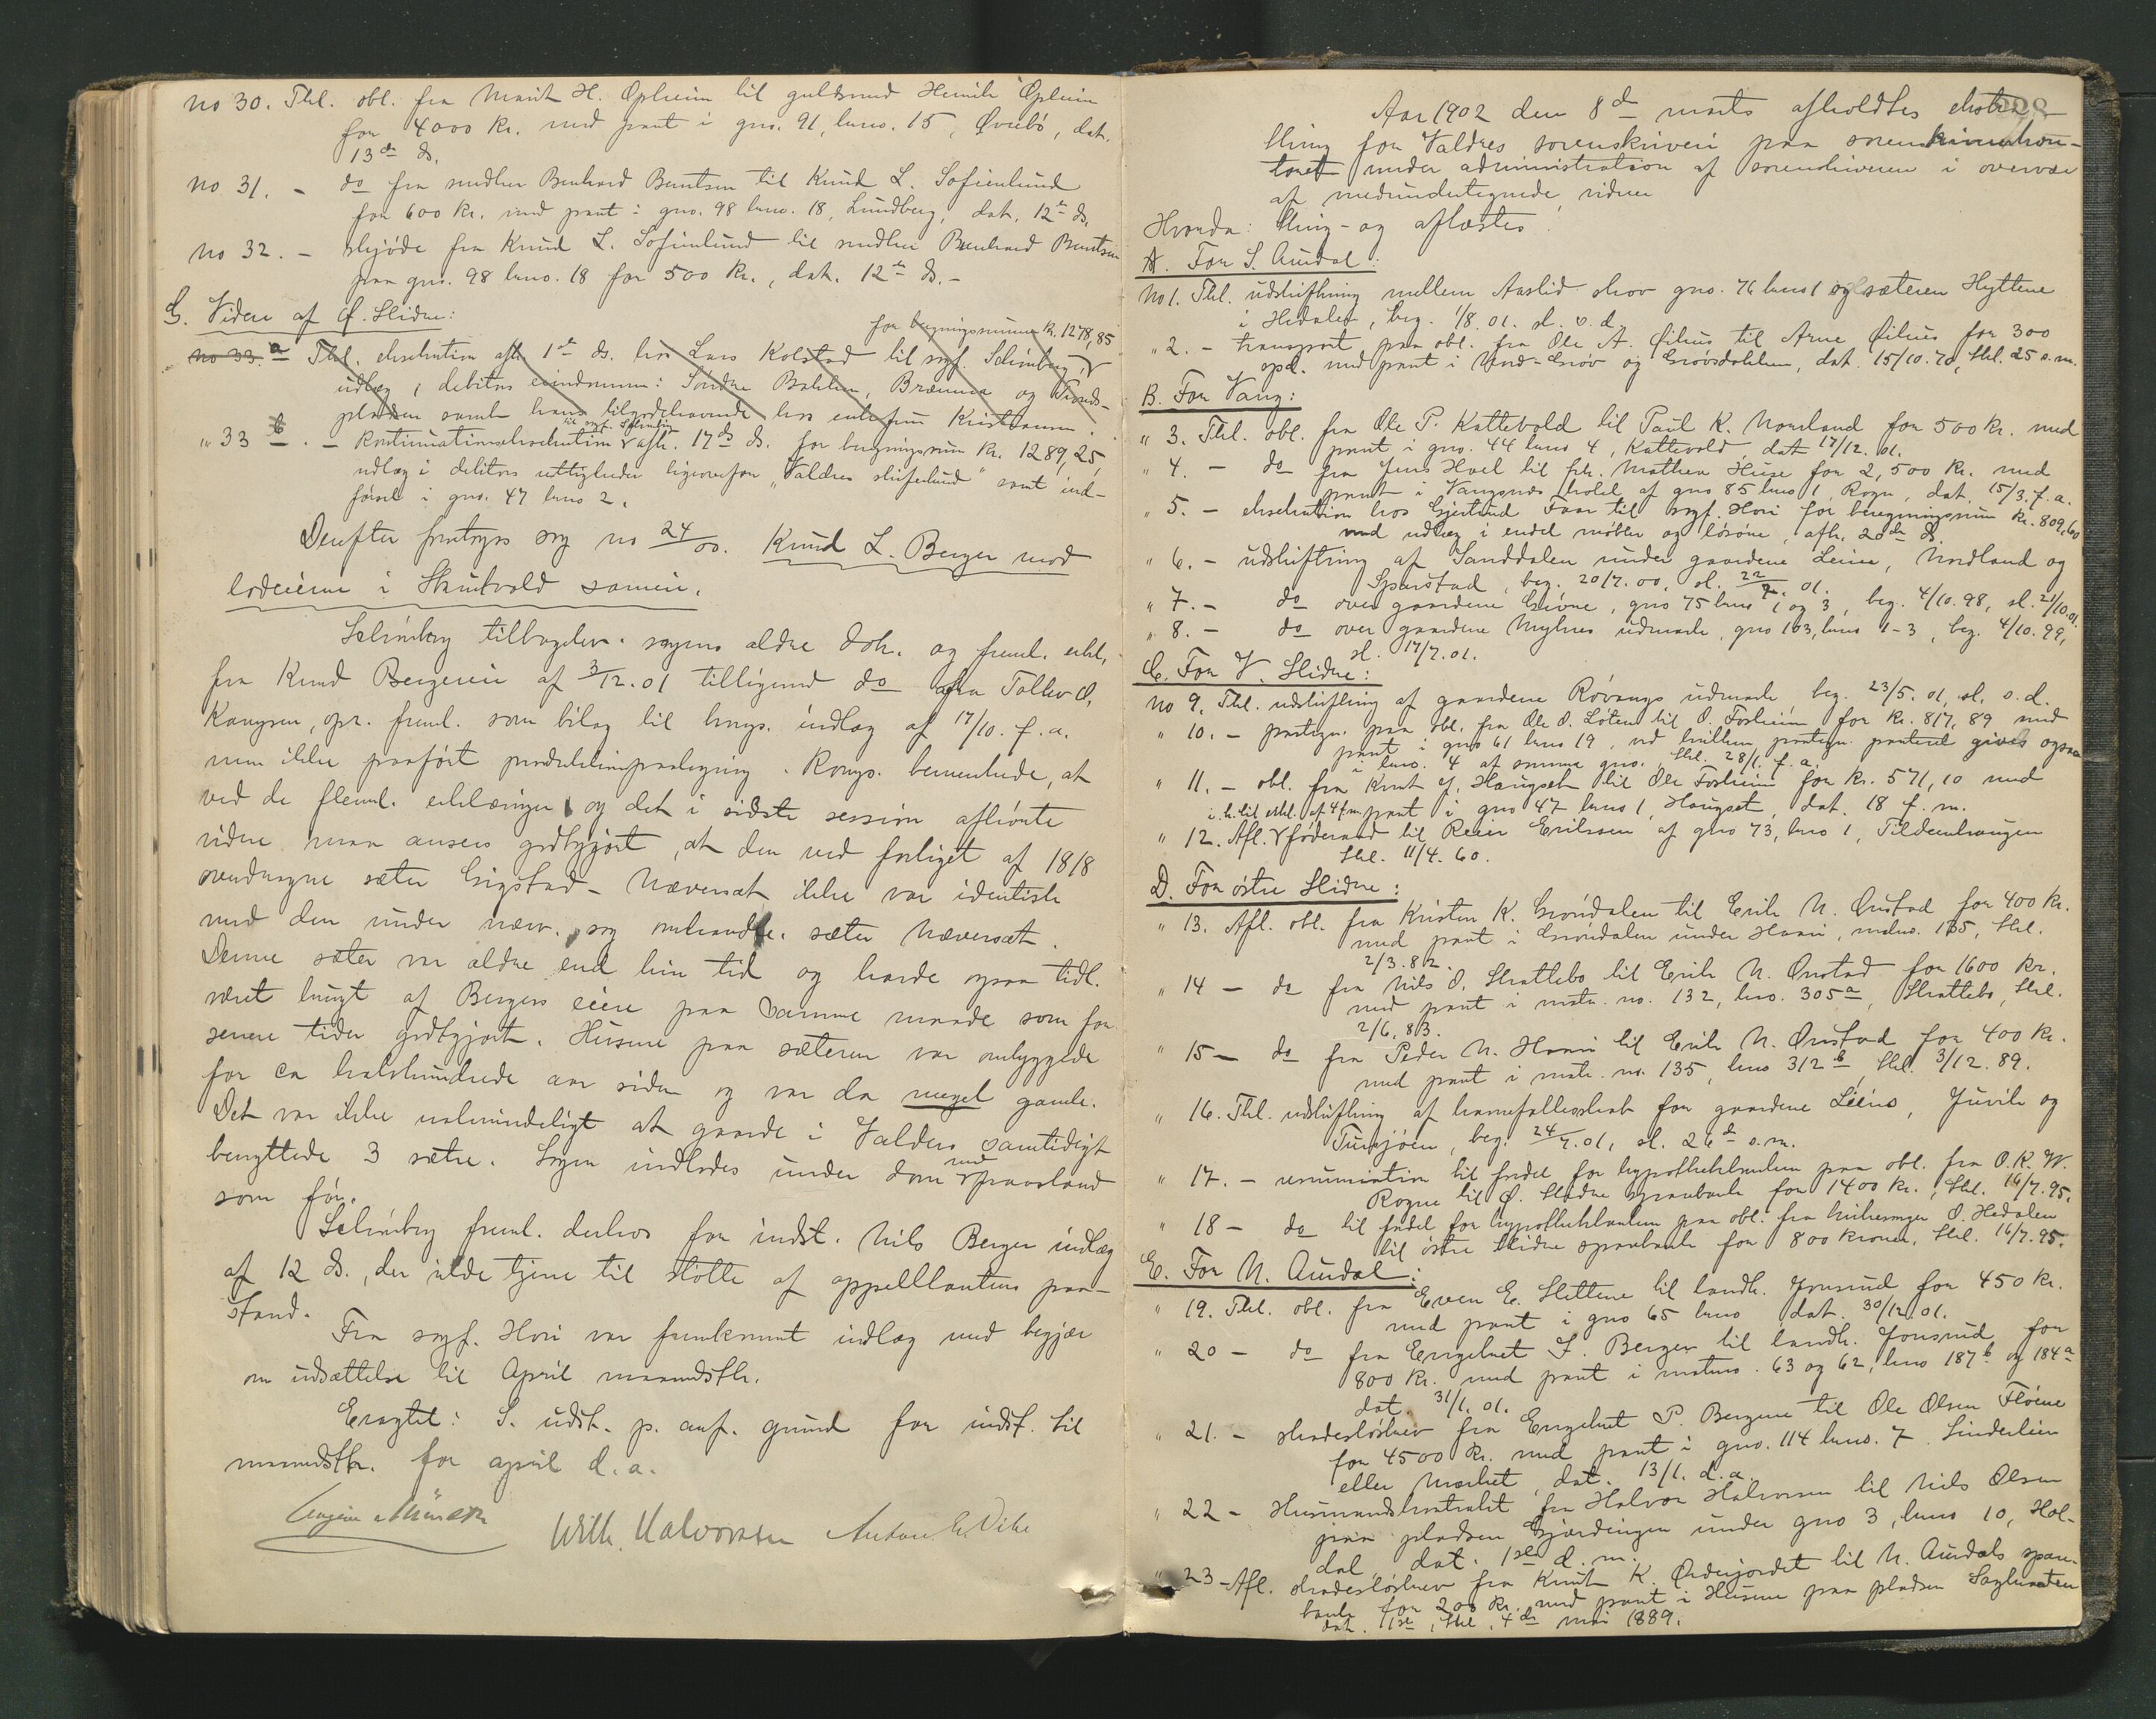 no 30. Thl. obl. fra Marit H. Opheim til guldsmed Henrik Opheim
for 4000 Kr. med pant i gno. 91, bno. 15, Øvrebø, dat.
13de ds.
no 31. – do fra snedker Bernhard Berntsen til Knud L. Sofienlund
for 600 Kr. med pant i gno. 98 bno. 18, Lundberg, dat. 12te ds.
no 32. – skjøde fra Knud L. Sofienlund til snedker Bernhard Berntsen
paa gno. 98 bno. 18 for 500 Kr., dat. 12te ds. –
G. Videre af Ø. Slidre:
for beregningssummen Kr. 1278,85
no 33. a Thl. eksekution afh. 1ste ds. hos Lars Kolstad til sagf. Schiørnberg
udlæg i debitors eiendomme: Søndre Bakken, Brænna og
pladsen samt hans tilgodehavende hos enkefru Kristiansen.
til sagf.
" 33 b. – Kontinuationseksekution afh. 17de ds. for beregningssum Kr. 1289,25,
udlæg i debitors rettigheder ligeoverfor "Valdres skiferbrud" samt ind-
førsel i gno. 47 bno 2.
Derefter foretoges sag no 24/00. Knud L. Berger mod
lodeierne i Skrutvold sameie.
tilbagelev. sagens ældre dok. og freml. erkl.
fra Knud Bergerie af 3/12.01 tilligemed do fra Tollev O.
Kangsen, opr. freml. som bilag til kongs. indlæg af 17/10. f. a.
men ikke paaført produktionspaategning. Kongs. bemerkede, at
ved de fleml. erklæringer og det i sidste session afhørte
vidne maa ansees godtgjort, at den ved forliget af 1818
omdragne sæter Grigstad – Næversæt ikke var identisk
med den under nærv. sag omhandle. sæter Næversæt.
Denne sæter var ældre end hin tid og havde ogsaa tidl.
været brugt af Bergers eiere paa samme maade som for
senere tider godtgjort. Husene paa sæteren var ombyggede
for ca halvhundrede aar siden og var da meget gamle.
Det var ikke ualmindeligt at gaarde i Valders samtidigt
benyttede 3 sætre. Sagen indlodes under dom med paastand
som før.
freml. derhos for indst. Nils Berger indlæg
af 12 ds., der vilde tjene til støtte af appellantens paa-
stand.
Fra sagf. Hovi var fremkommet indlæg med begjær
om udsættelse til April maanedsth.
Eragtet: S. udst. p. anf. grund for indst. til
maanedsth. for april d. a.
Wilh. Halvorsen Anton E. Vike
228
Aar 1902 den 8de marts afholdtes ekstra-
thing for Valdres sorenskriveri paa sorenskriverkon-
toret under administration af sorenskriveren i overvær
af medundertegnede vidner
Hvorda: thing- og aflæstes
A. For S. Aurdal:
No 1. Thl. udskiftning mellem Aaslid skov gno. 76 bno 1 og sæteren Hyttene
i Hedalen, beg. 1/8.01. sl. s. d.
" 2. – transport paa obl. fra Ole A. Øihus til Arne Øihus for 300
spd. med pant i Nord-Grøv og Grøvsdokken, dat. 15/10.70, thl. 25 s.m.
B. For Vang:
" 3. Thl. obl. fra Ole P. Kattevold til Paul K. Nordland for 500 kr. med
pant i gno. 44 bno 4, Kattevold, dat 17/12.01.
" 4. – do fra Jens Hoel til frk. Mathea Huse for 2,500 Kr. med
pant i Vangsnes hotel af gno 85 bno 1, Rogn, dat. 15/3. f. a.
" 5. – eksekution hos Gjertrud Faar til sagf. Hovi for beregningssum Kr. 809,60
med udlæg i endel møbler og løsøre, afh. 20de ds.
" 6. – udskiftning af Sanddalen under gaardene Leine, Nordland og
Sparstad, beg. 20/7.00, sl. 22/7.01.
" 7. – do over gaardene Grivne, gno 75 bno 1 og 3, beg. 4/10.98, sl. 21/10.01.
" 8. – do over gaardene Myhres udmark, gno 103, bno 1-3, beg. 4/10.99,
sl. 17/7.01.
C. For V. Slidre:
no 9. Thl. udskiftning af gaardene Røvangs udmark beg. 23/5.01, sl. s. d.
" 10. – paategn. paa obl. fra Ole O. Løken til O. Fosheim for Kr. 817,89 med
pant i gno 61 bno 19, ved hvilken paategn. panteret gives ogsaa
i bno. 4 af samme gno., thl. 28/1. f. a.
" 11. – obl. fra Knut J. Haugset til Ole Fosheim for Kr. 571,10 med
i.h.til erkl. af 4 f.m. pant i gno 47 bno 1, Haugset, dat. 18 f. m.
" 12. Afl. føderaad til Reier Eriksson af gno 73, bno 1, Tildenhaugen
thl. 11/4.60.
D. For østre Slidre:
" 13. Afl. obl. fra Kristen K. Grøndalen til Erik N. Ønstad for 400 Kr.
med pant i Grøndalen under Haavi, matno. 135, thl.
2/3.82.
" 14 – do fra Nils O. Skattebo til Erik N. Ønstad for 1600 kr.
med pant i matr. no. 132, lno. 305a, Skattebo, thl.
2/6.83.
" 15 – do fra Peder N. Haavi til Erik N. Ønstad for 400 Kr.
med pant i matr. no. 135, lno 312b, thl. 3/12.89.
" 16. Thl. udskiftning af havnefællesskab for gaardene Liens, Juvik og
beg. 24/7.01, sl. 26de s.m.
" 17. – renunciation til fordel for hypothekbanken paa obl. fra O. K. W.
Rogne til Ø. Slidre sparebank for 1400 kr., thl. 16/7.95.
" 18 – do til fordel for hypothekbanken paa obl. fra kirkesanger O. Hedalen
til østre Slidre sparebank for 800 kroner, thl. 16/7.95.
E. For N. Aurdal:
" 19. Thl. obl. fra Even E. Slettene til landh. Jonsrud for 450 kr.
med pant i gno 65 bno dat. 30/12.01.
" 20 – do fra Engebret I. Berger til landh. Jonsrud for
800 Kr. med pant i matno. 63 og 62, lno 187b og 184a
dat. 31/1.01.
" 21. – skadesløsbrev fra Engebret P. Bergene til Ole Olsen Fløene
for 4500 Kr. med pant i gno. 114 bno. 7 Linderlien
eller Moshet, dat. 13/1. d. a.
" 22 – Husmandskontrakt fra Halvor Halvorsen til Nils Olsen
paa pladsen Gjærdingen under gno 3, bno 10, Hol-
dal, dat. 1ste d. m.
" 23 – Afl. skadesløsbrev fra Knut K. Ødejordet til N. Aurdals spare-
bank for 200 kr. med pant i Husene paa pladsen Saglimoten
dat. 1ste, thl. 4de mai 1889.